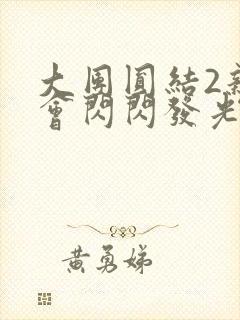 大團圓結2新
會閃閃發光
黃勇娣